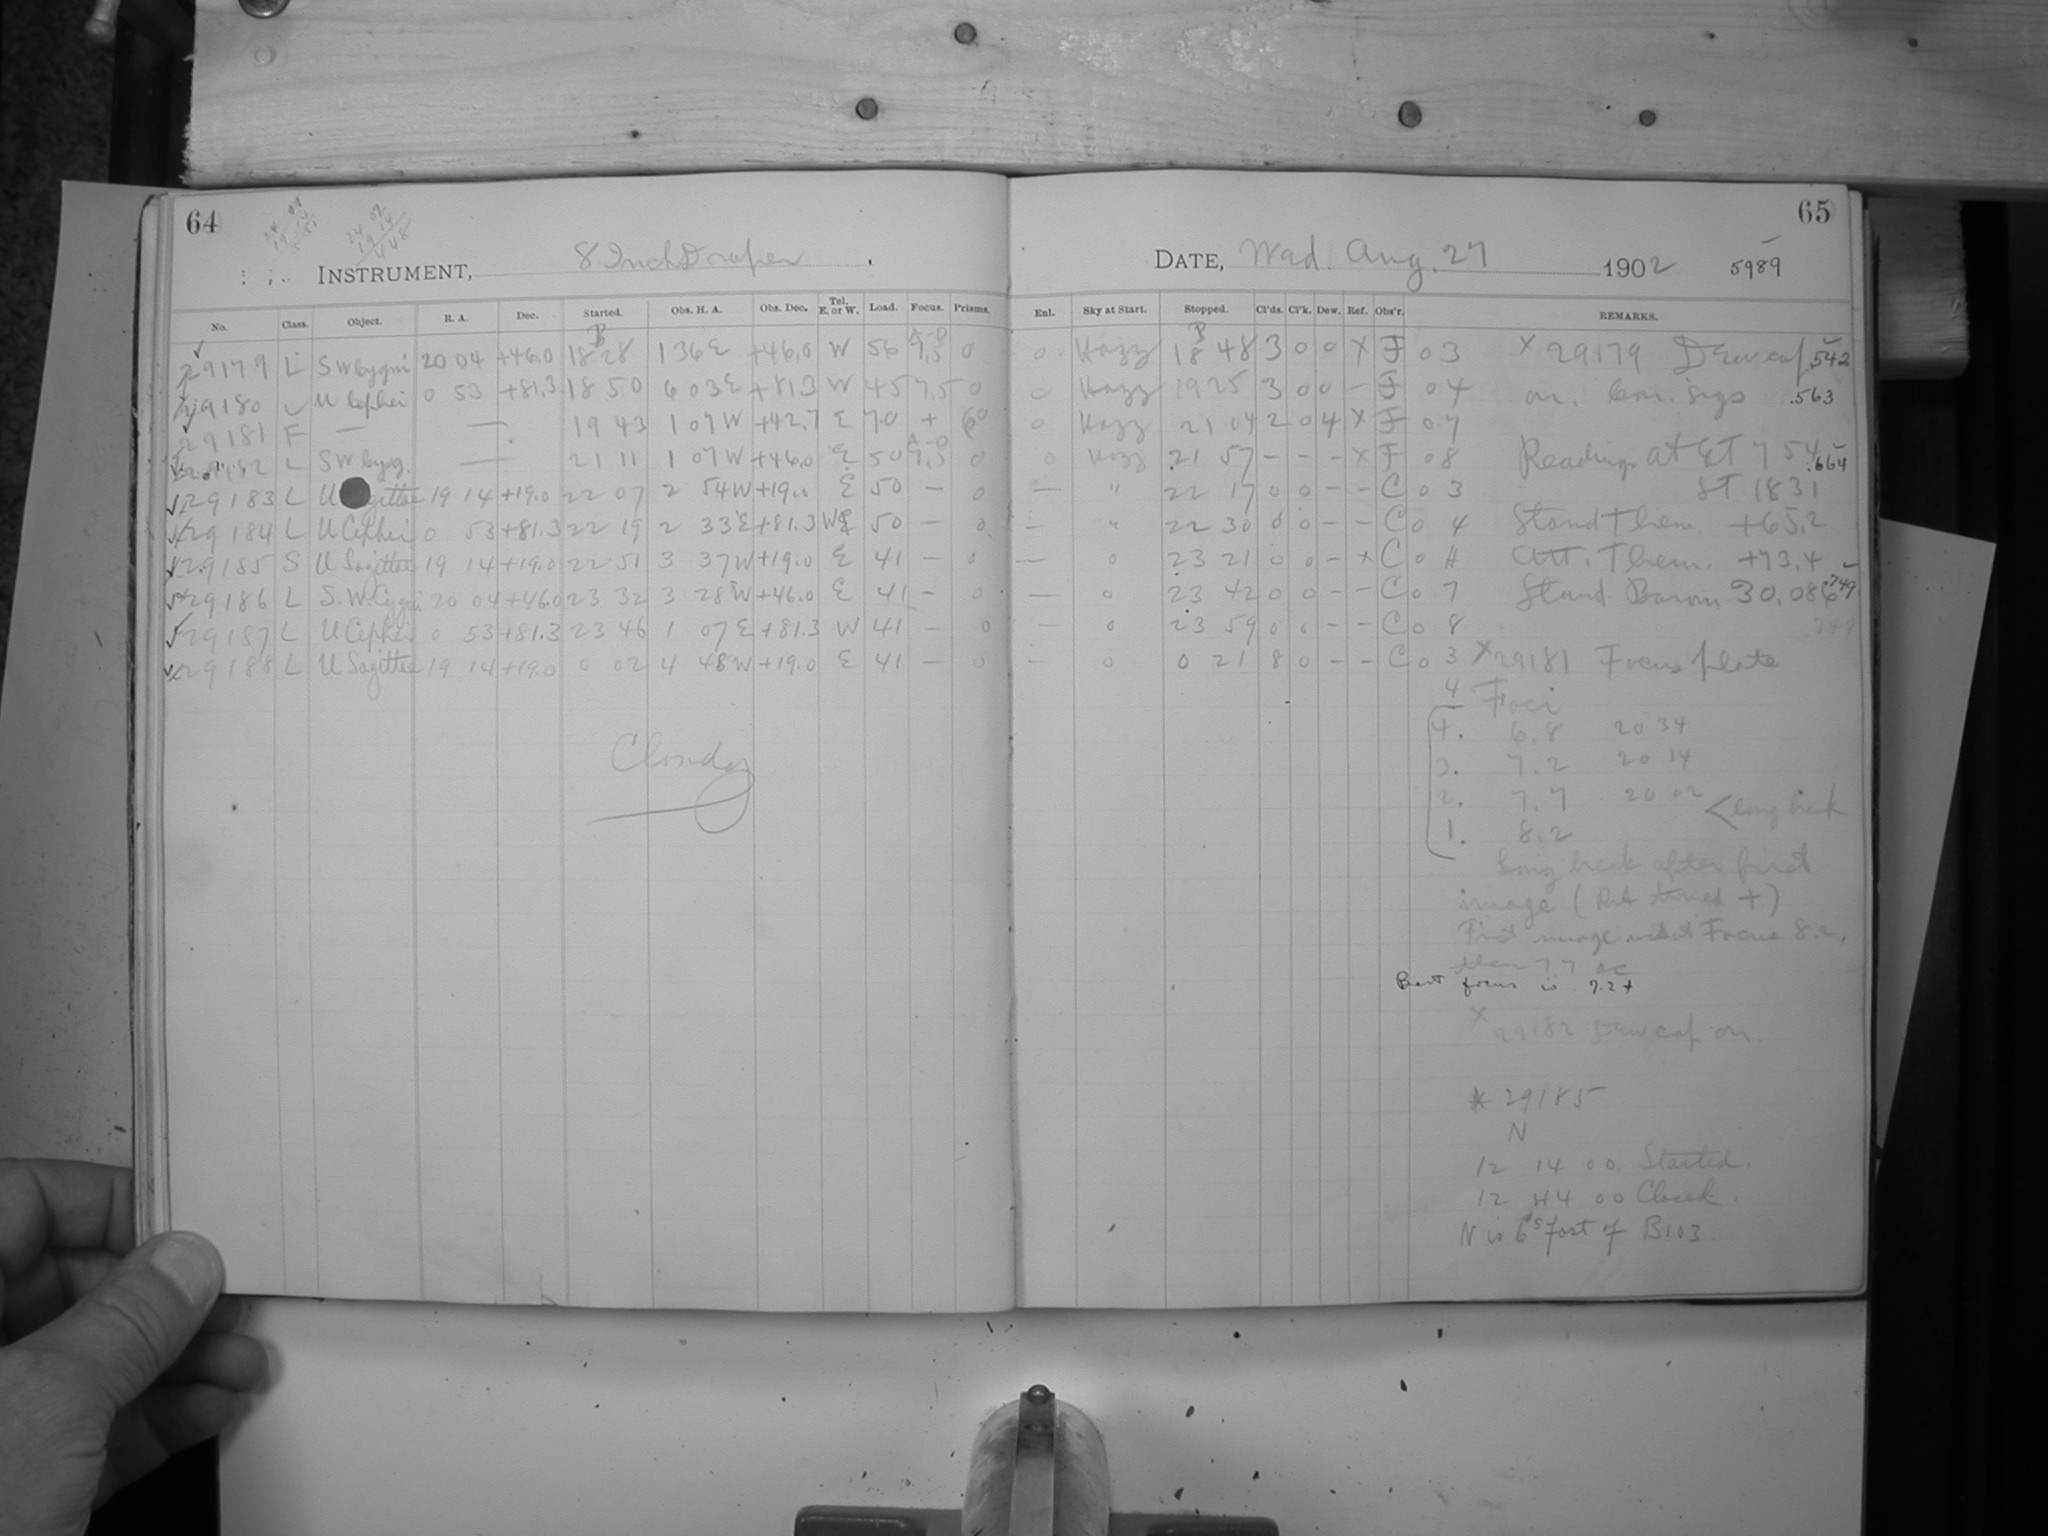 64
INSTRUMENT, 8 Inch Draper
No. Class. Object. R. A. Dec. Started. Obs. H. A. Obs. Dec. Tel. E. or W. Load. Focus. Prisms.
29179 L SW Cygni 20 04 +46.0 18 28 1 36 E +46.0 W 56 7.5 0
29180 L U Cephei 0 53 +81.3 18 50 6 03 E +81.3 W 45 7.5 0
29181 F — — 19 43 1 07 W +42.7 E 70 +
29182 L SW Cyg. — 21 11 1 07 W +46.0 E 50 7.5 0
29183 L U Sagittae 19 14 +19.0 22 07 2 54 W +19.0 E 50 — 0
29184 L U Cephei 0 53 +81.3 22 19 2 33 E +81.3 W 50 — 0
29185 S U Sagittae 19 14 +19.0 22 51 3 37 W +19.0 E 41 — 0
29186 L S.W. Cygni 20 04 +46.0 23 32 3 28 W +46.0 E 41 — 0
29187 L U Cephei 0 53 +81.3 23 46 1 07 E +81.3 W 41 — 0
29188 L U Sagittae 19 14 +19.0 0 02 4 48 W +19.0 E 41 — 0
Cloudy
65
DATE, Wed. Aug. 27 1902 5989
Enl. Sky at Start. Stopped. Cl'ds. Cl'k. Dew. Ref. Obs'r. REMARKS.
0 Hazy 18 48 3 0 0 X F 03 X 29179 Dewcap .542
0 Hazy 19 25 3 0 0 — F 04 on. .563
0 Hazy 21 04 2 0 4 X F 07
0 Hazy 21 57 — — — X F 08 Readings at ET 7 54 .664
— " 22 17 0 0 — — C 0 3 ST 18 31
— " 22 30 0 0 — — C 0 4 Stand Therm. +65.2
— 0 23 21 0 0 — X C 0 4 Att. Therm. +73.4
— 0 23 42 0 0 — — C 0 7 Stand. Barom 30.086 .749
— 0 23 59 0 0 — — C 0 8 749
— 0 0 21 8 0 — — C 0 3 X 29181 Focus plate
4 Foci
4. 6.8 20 34
3. 7.2 20 14
2. 7.7 20 02 < long break
1. 8.2
Long break after first
image (
First image Focus 8.2,
then 7.7
Best focus is 7.2+
X 29182 Dewcap on
* 29185
N
12 14 00 Started.
12 44 00 Closed.
N is 6s fast of B103.